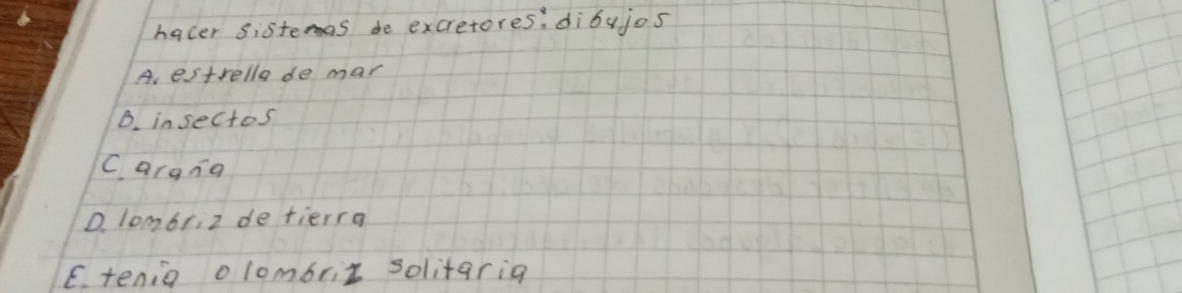 hacer sistemas de excretores: dibujos
A. estrella de mar
B. insectos
C. araña
D. lombriz de tierra
E. tenia o lombriz solitaria